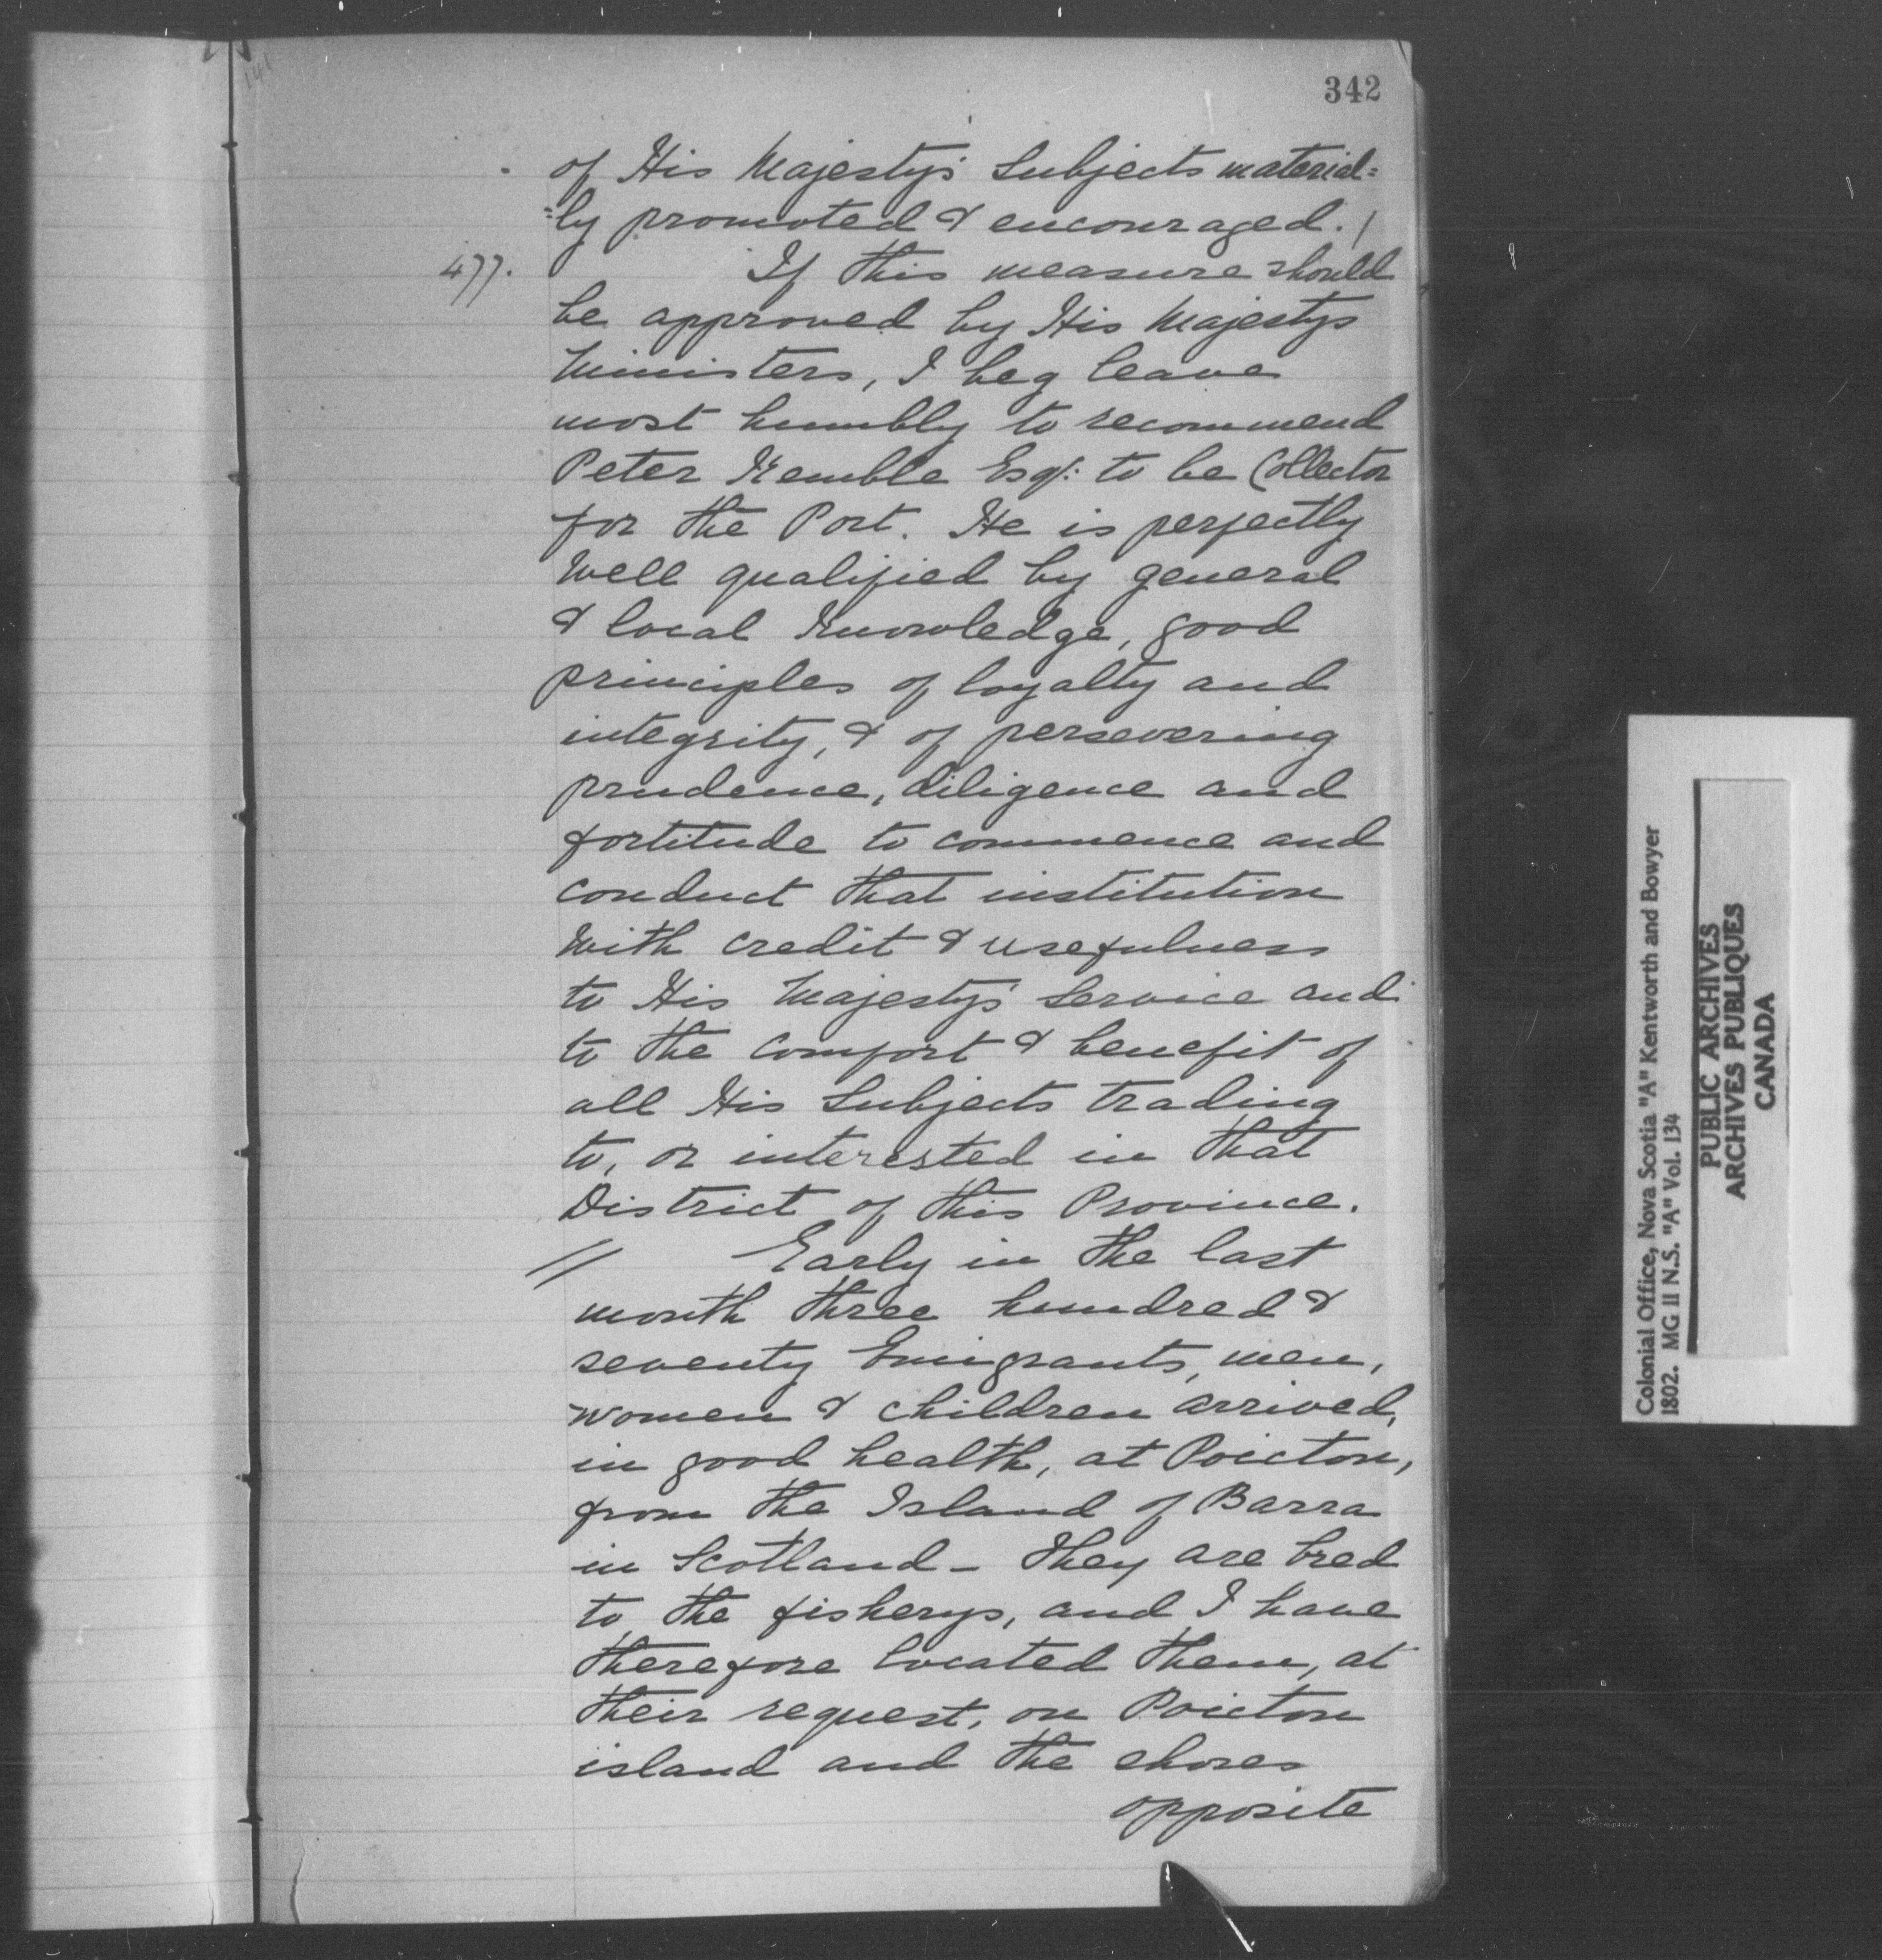 342
of His Majesty's Subjects material=
=ly promoted & encouraged. /
477. If this measure should
be approved by His Majestys
Ministers, I beg leave
most humbly to recommend
Peter Kemble Esq: to be Collector
for the Port. He is perfectly
well qualified by general
& local knowledge, good
principles of loyalty and
integrity, & of persevering
prudence, diligence and
fortitude to commence and
conduct that institution
with credit & usefulness
to His Majesty's Service and
to the comfort & benefit of
all His Subjects trading
to, or interested in that
District of this Province.
// Early in the last
month three hundred &
seventy Emigrants, men,
women & children arrived,
in good health, at Poicton,
from the Island of Barra
in Scotland - They are bred
to the fisherys, and I have
therefore located them, at
their request, on Poicton
island and the shores
opposite
Colonial Office, Nova Scotia "A" Kentworth and Bowyer
1802. MG 11 N.S. "A" Vol. 134
PUBLIC ARCHIVES
ARCHIVES PUBLIQUES
CANADA